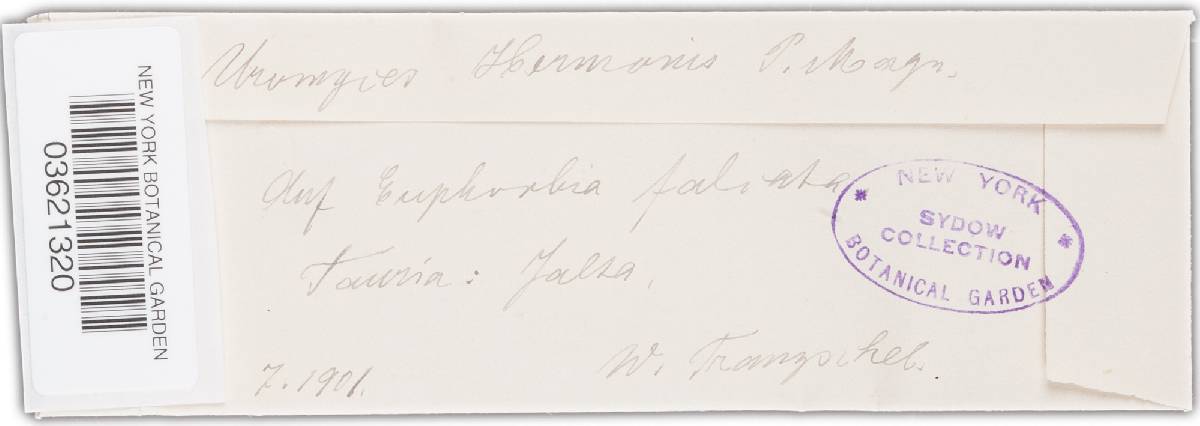 Uromyces Hermonis P. Magn.
auf Euphorbia falcata
Tauria: Jalta,
7. 1901.
W. Tranzschel.
NEW YORK
SYDOW
COLLECTION
BOTANICAL GARDEN
NEW YORK BOTANICAL GARDEN
03621320